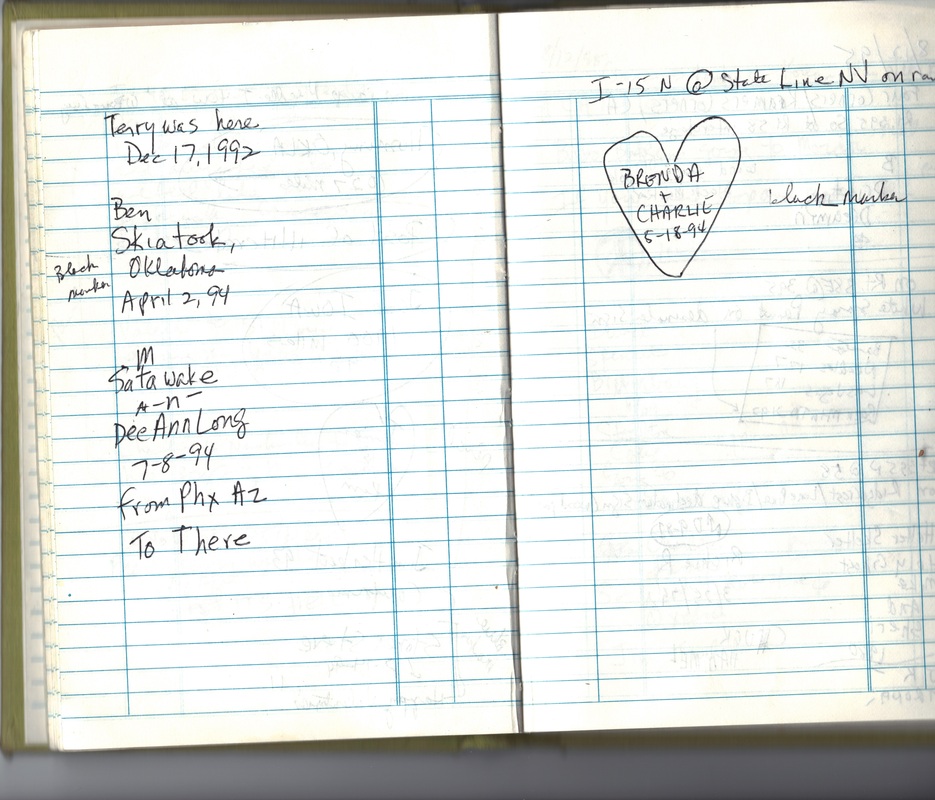 Terry was here
Dec 17, 1992
Ben
Skiatook,
Oklahoma
Black marker
April 2, 94
M
Satawake
A-n-
DeeAnn Long
7-8-94
From Phx Az
To There
I-15 N @ State Line NV on ra
BRENDA
+
CHARLIE
5-18-94
black marker